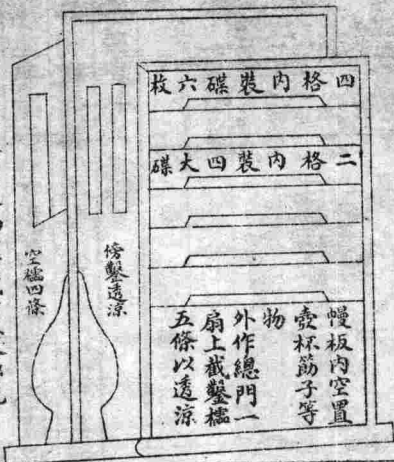 四格内裝碟六枚
二格内裝四大碟
幔板内空置
壺杯筯子等
物
外作總門一
扇上截鑿櫺
五條以透涼
傍鑿透涼
空櫺四條